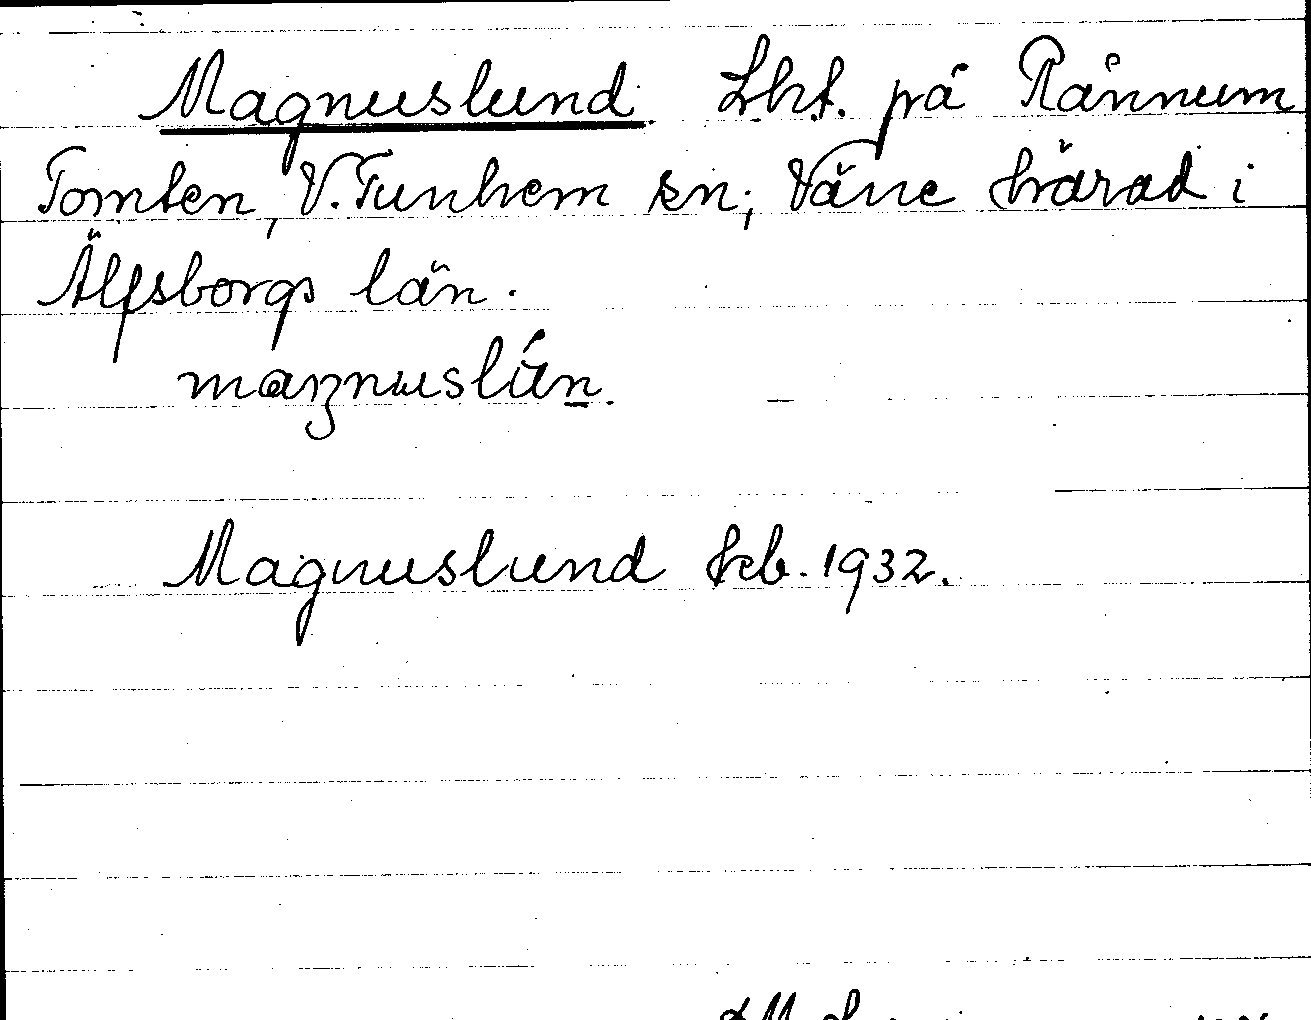 Magnuslund. Lht. på Rånnum
Tomten, V. Tunhem sn; Väne härad i
Älfsborgs län.
maŋnuslún.
Magnuslund feb. 1932.